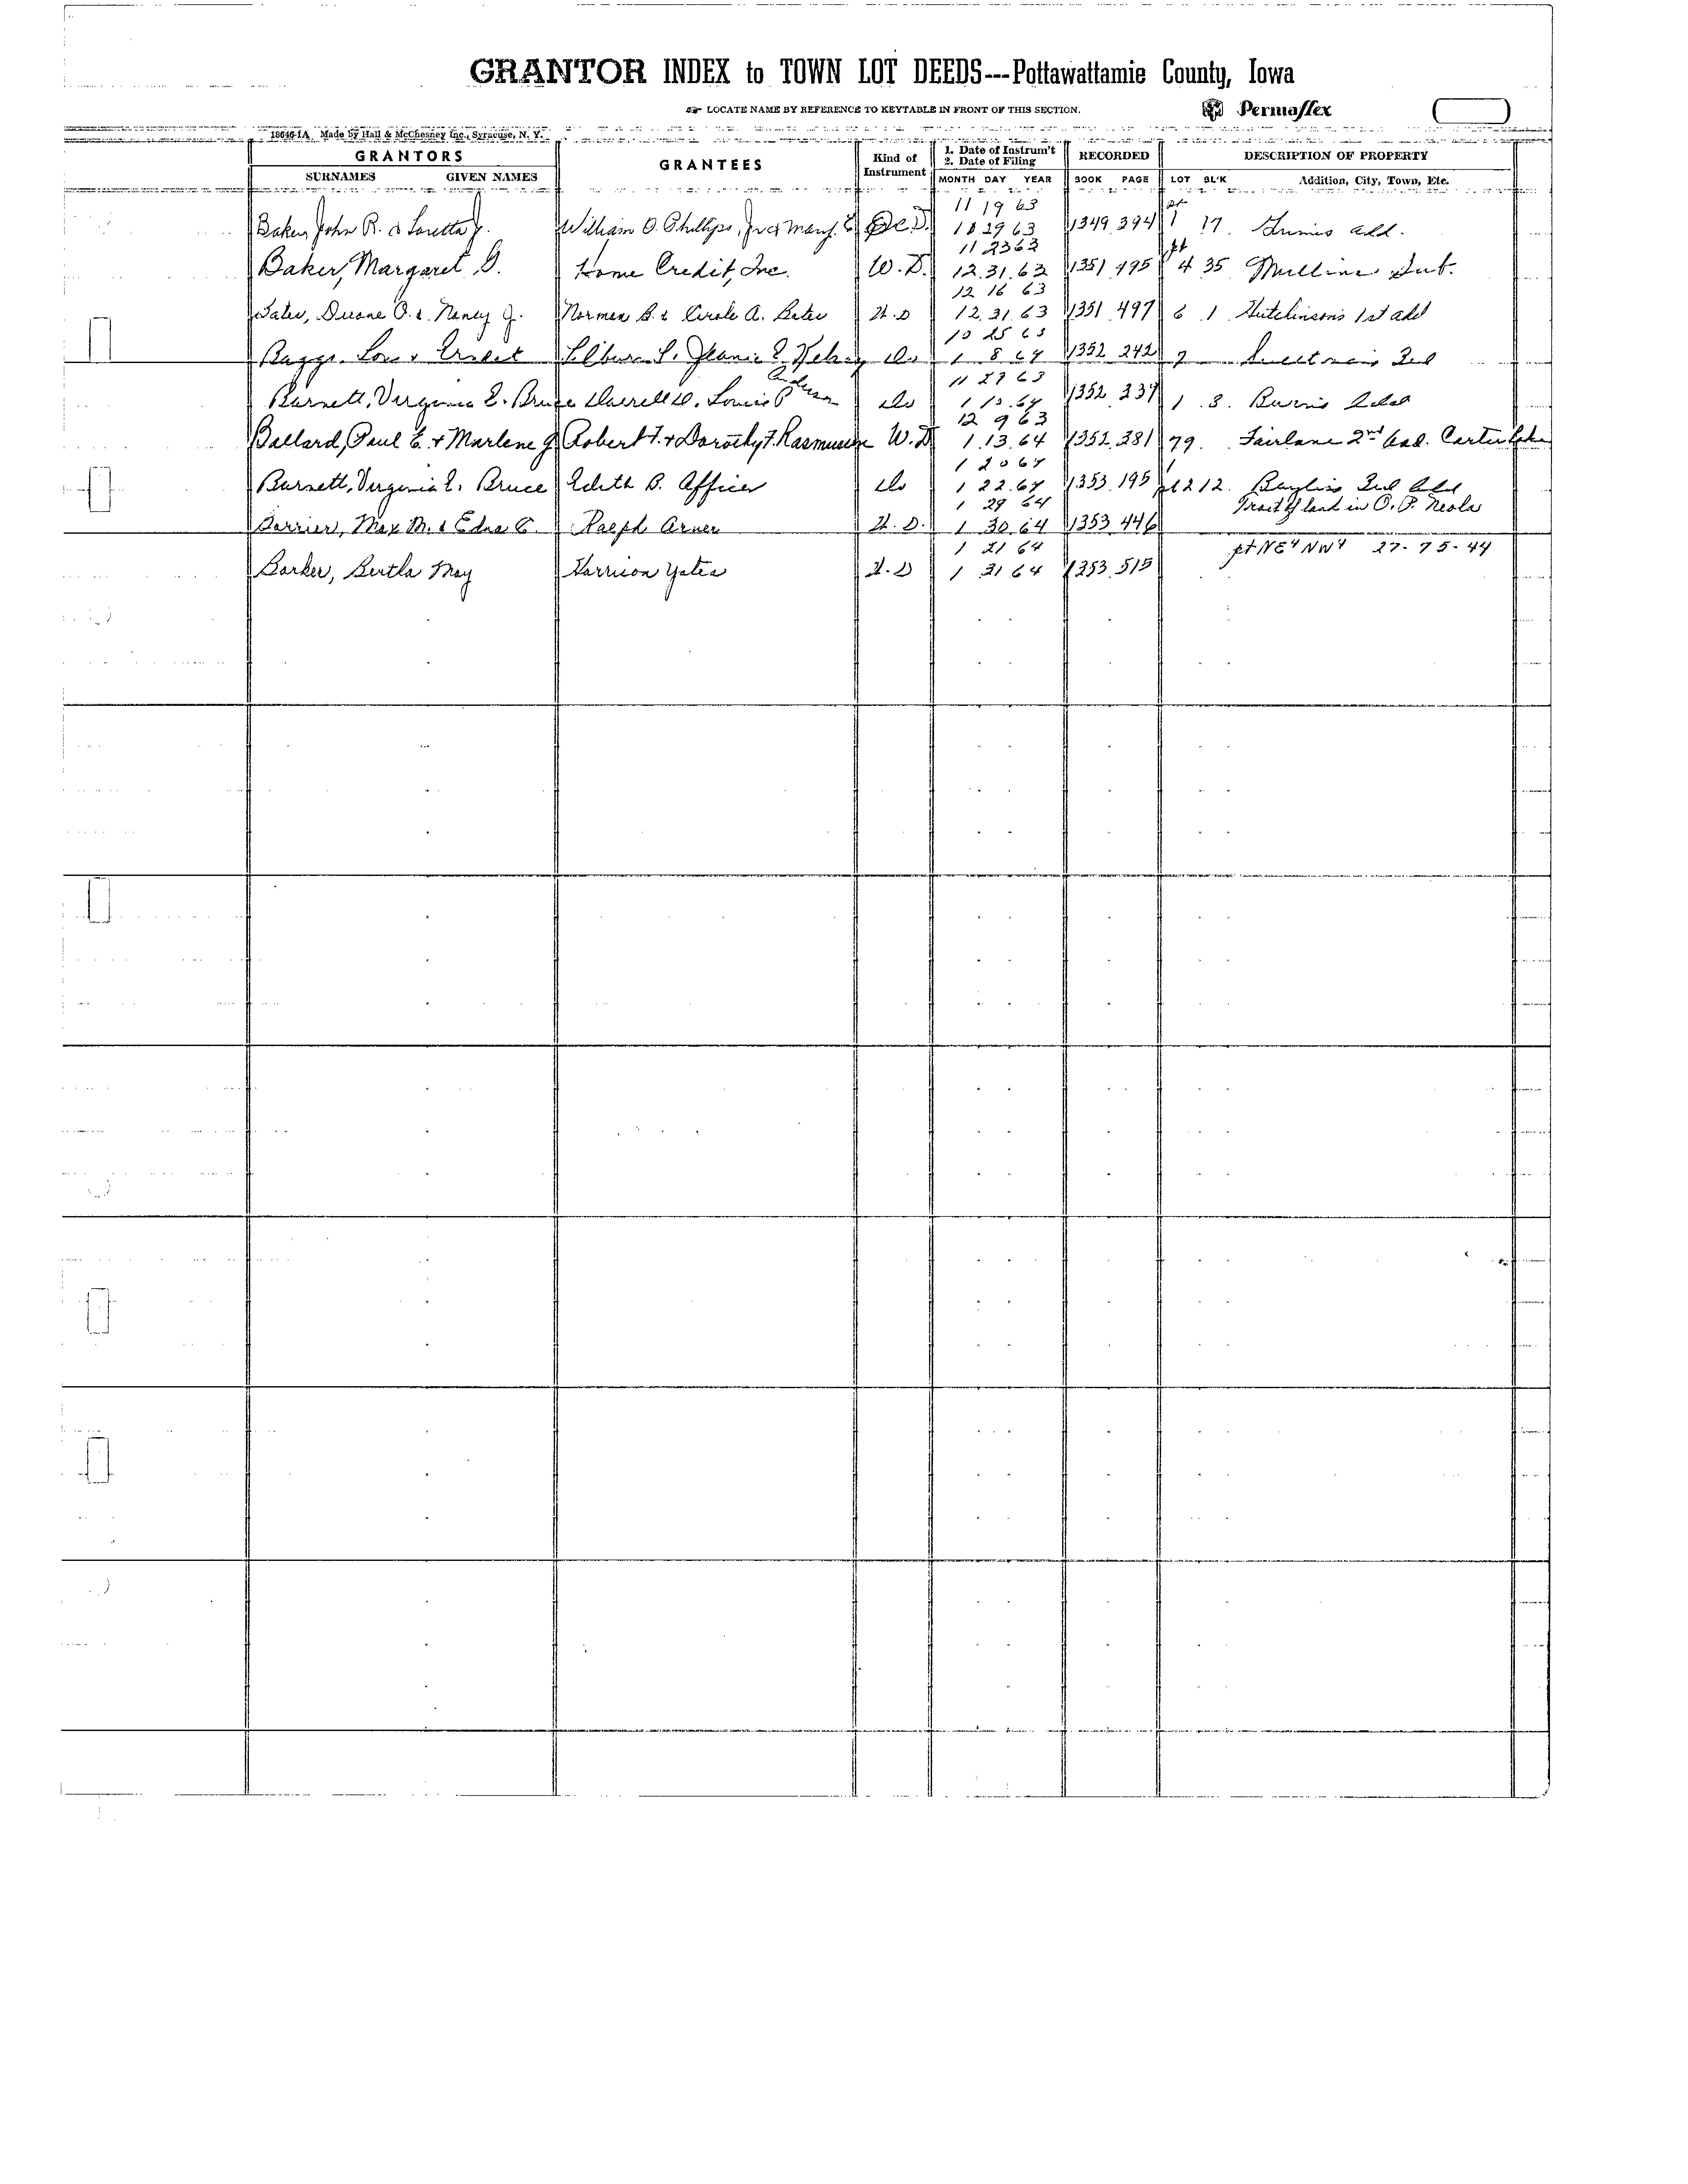 GRANTOR INDEX to TOWN LOT DEEDS---Pottawattamie County, Iowa
LOCATE NAME BY REFERENCE TO KEYTABLE IN FRONT OF THIS SECTION.
Permaflex
18646-1A Made by Hall & McChesney Inc., Syracuse, N. Y.
GRANTORS GRANTEES Kind of Instrument 1. Date of Instrum't 2. Date of Filing RECORDED DESCRIPTION OF PROPERTY
SURNAMES GIVEN NAMES MONTH DAY YEAR BOOK PAGE LOT BL'K Addition, City, Town, Etc.
11 19 63 pt
Baker, John R. & Loretta J. William O. Phillips, Jr & Mary E. 29 63 1349 394 1 17 add.
11 23 63 pt
Baker, Margaret G. Home Credit, Inc. W.D. 12 31 63 1351 495 4 35 Mullins Sub.
12 16 63
Bates, Duane O. & Nancy J. Norman B. & Carole A. Bates W.D 12 31 63 1351 497 6 1 Hutchinson's 1st add
10 25 63
Baggs Lou & Ernest Jeanie E. Kelsey Do 1 8 64 1352 242 2 3rd
11 29 63
Anderson
Barnett, Virginia E. Bruce Darrell D. Louise P Do 1 10 64 1352 337 1 3 Burns Add
12 9 63
Ballard, Paul E. & Marlene J Robert F. & Dorothy F. Rasmussen W.D 1 13 64 1352 381 79 Fairlane 2nd Add. Carter Lake
1 20 64
Barnett, Virginia E. Bruce Edith B. Officer Do 1 22 64 1353 195 pt 12 12 Bayliss 3rd Add
1 29 64 Tract of land in O.P. Neola
Barrier, Max M. & Edna C. Ralph Arner W.D. 1 30 64 1353 446
1 21 64 pt NE4 NW4 27-75-44
Barker, Bertha May Harrison Yates W.D 1 31 64 1353 515